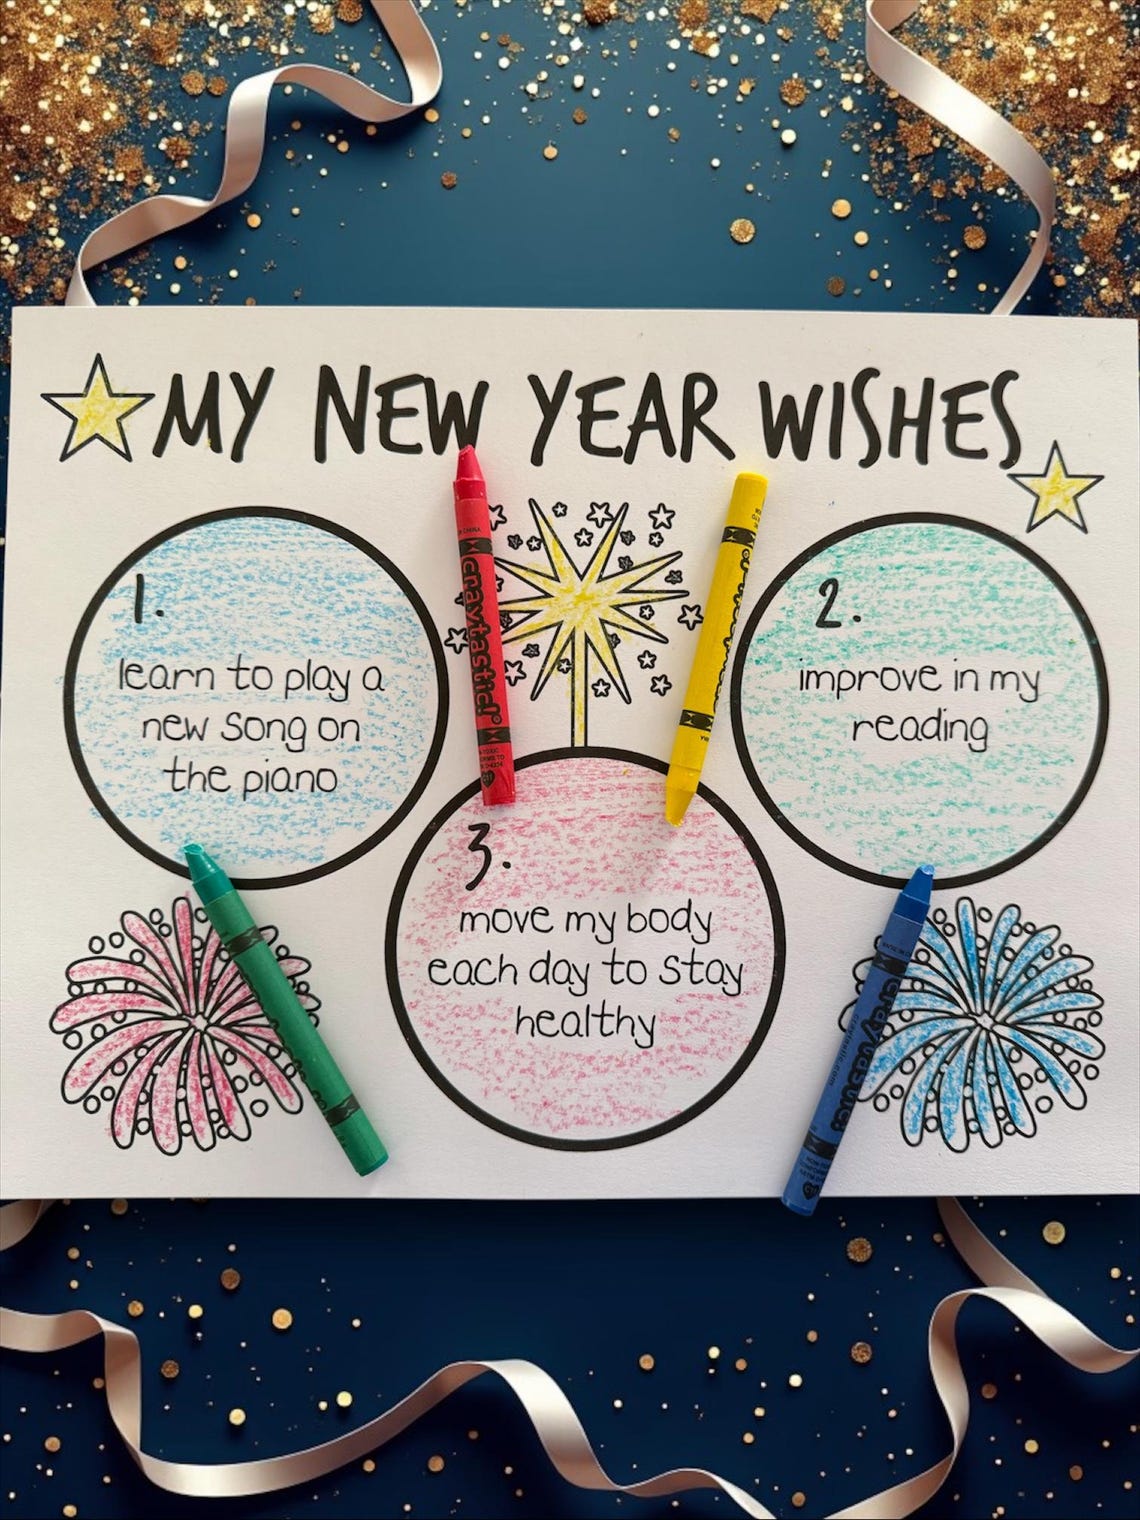 MY NEW YEAR WISHES
1.
learn to play a
new song on
the piano
2.
improve in my
reading
3.
move my body
each day to stay
healthy
craytastic!